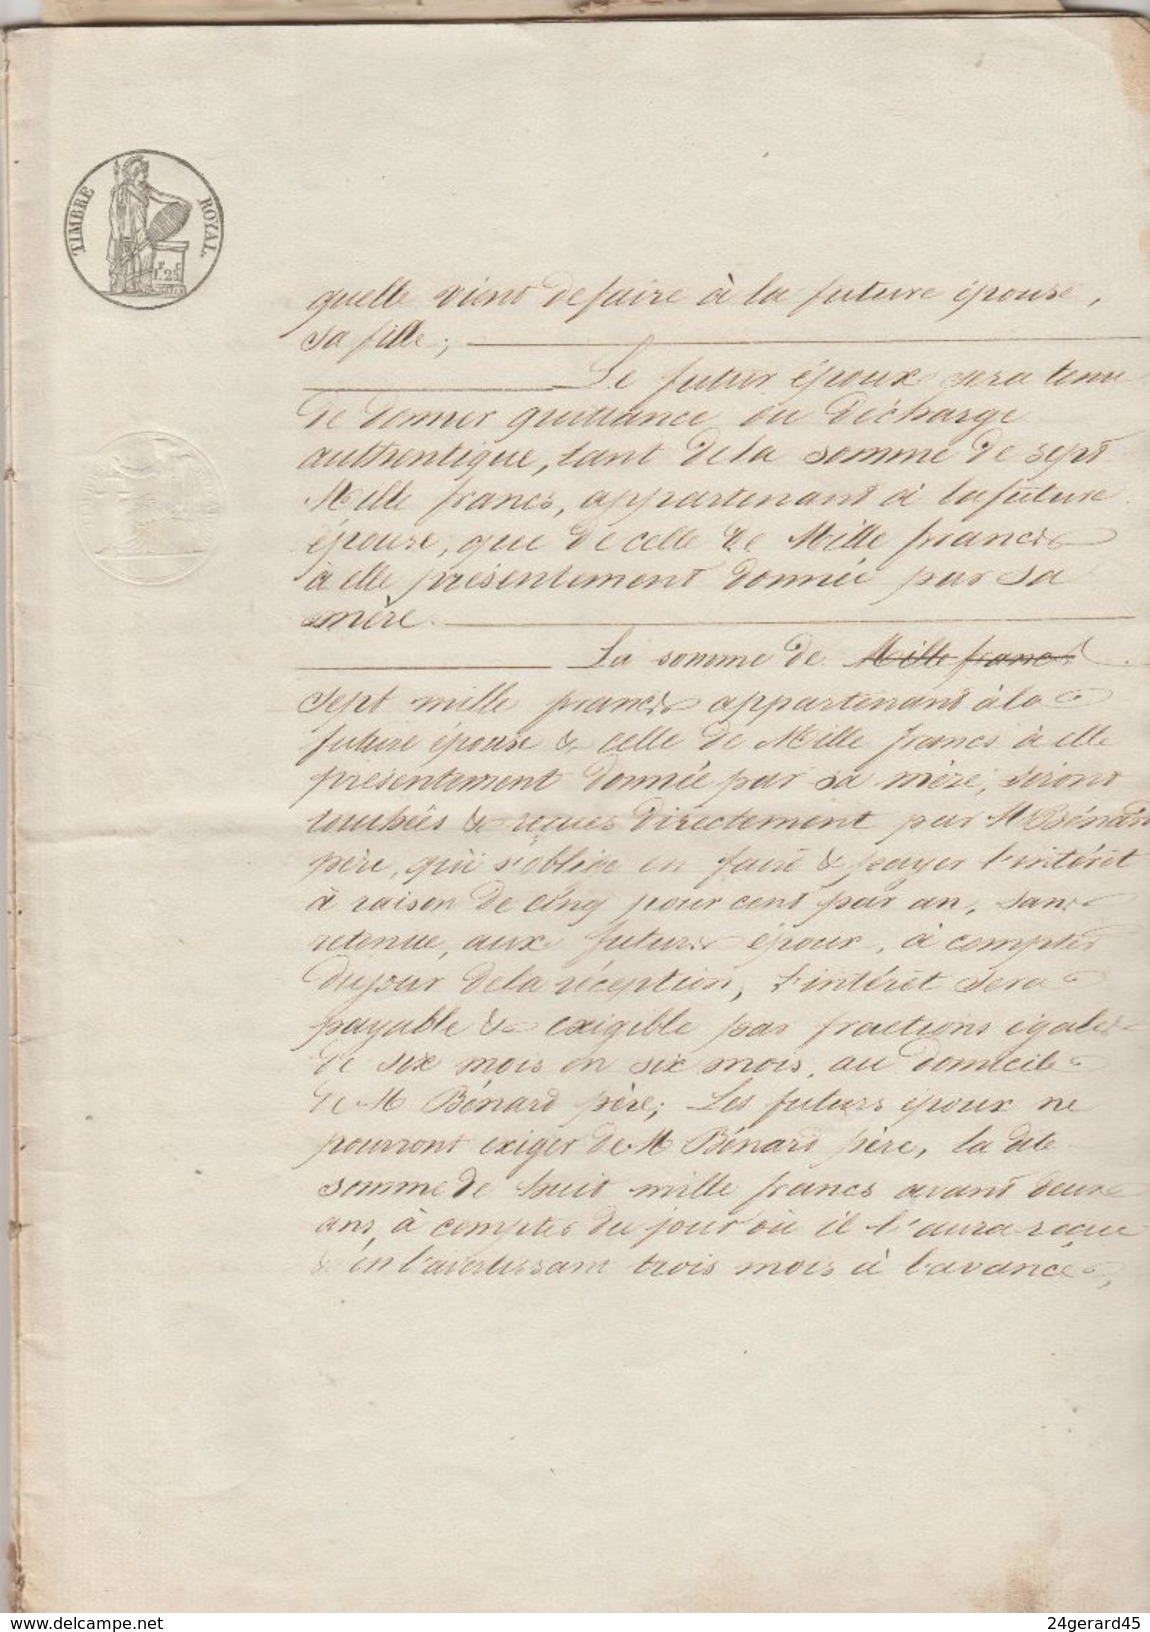 TIMBRE ROYAL
1.F 25.C
quelle vient de faire à la future épouse,
sa fille;
Le futur époux sera tenu
de donner quittance ou décharge
authentique, tant de la somme de sept
Mille francs, appartenant à la future
épouse, que de celle de Mille francs
à elle présentement donnée par sa
mère.
La somme de Mille francs
sept mille francs appartenant à la
future épouse & celle de Mille francs à elle
présentement donnée par sa mère, seront
touchées & reçues directement par M Bénard
père, qui s'oblige en faire & payer l'intérêt
à raison de cinq pour cent par an, sans
retenue, aux futurs époux, à compter
du jour de la réception, L'intérêt sera
payable & exigible par fractions égales
de six mois en six mois, au domicile
de M Bénard père; Les futurs époux ne
pourront exiger de M Bénard père, la dite
somme de huit mille francs avant deux
ans, à compter du jour où il l'aura reçue
& en l'avertissant trois mois à l'avance,
www.delcampe.net
24gerard45